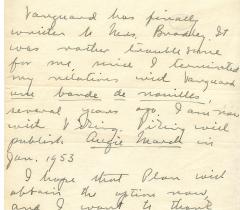 Vanguard has finally
written to Mrs. Bradley. It
was rather troublesome
for me, since I terminated
my relations with Vanguard
une bande de nouilles,
several years ago. I am now
with Viking. Viking will
publish Augie March in
Jan. 1953
I hope that Plon will
obtain the option now
and I want to thank